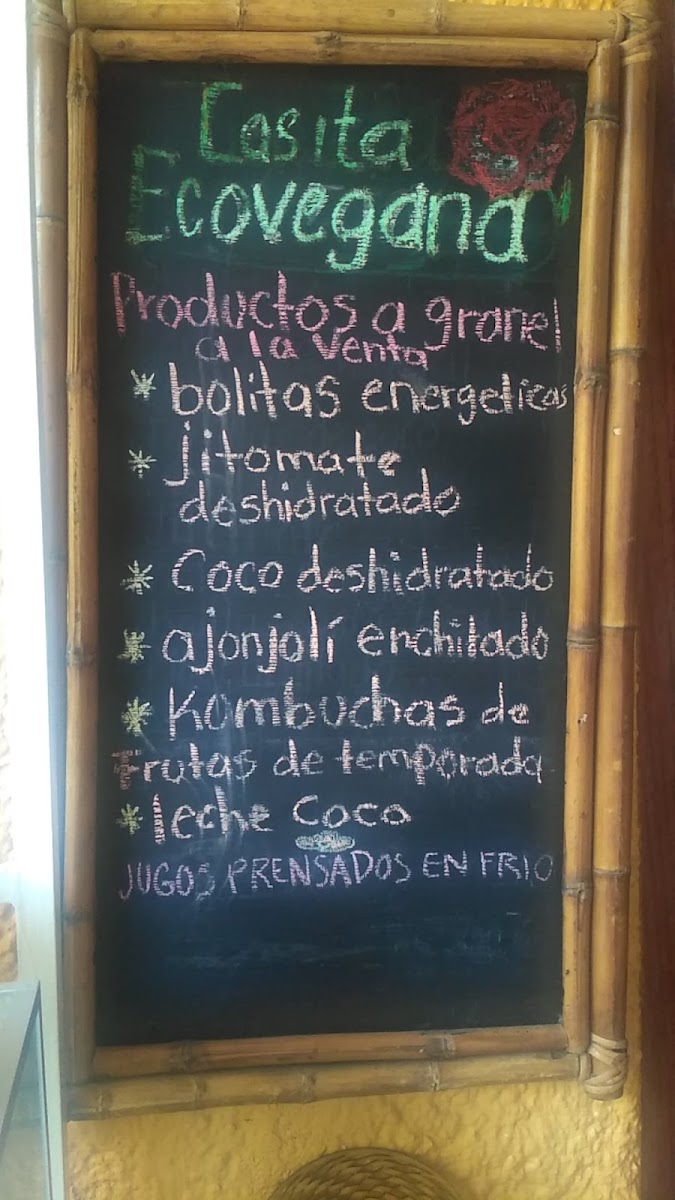 Casita
Ecovegana
Productos a granel
a la venta
* bolitas energeticas
* jitomate
deshidratado
* Coco deshidratado
* ajonjolí enchilado
* Kombuchas de
Frutas de temporada
* leche coco
JUGOS PRENSADOS EN FRIO